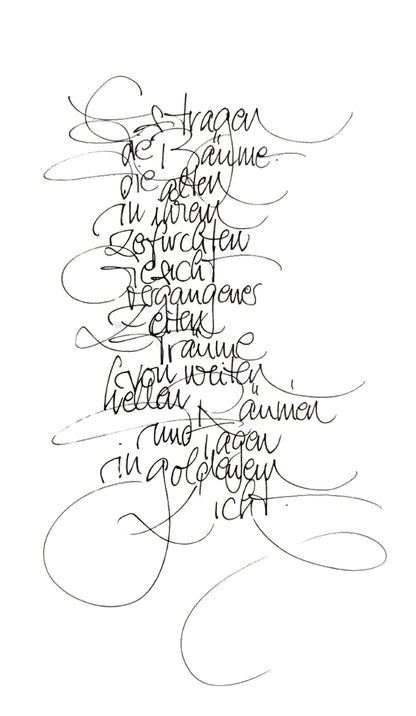 Es tragen
die Bäume
die alten
in ihren
zerfurchten
Gesicht
vergangener
Zeiten
Träume
von weiten
hellen Räumen
und Tagen
in goldenem
Licht.